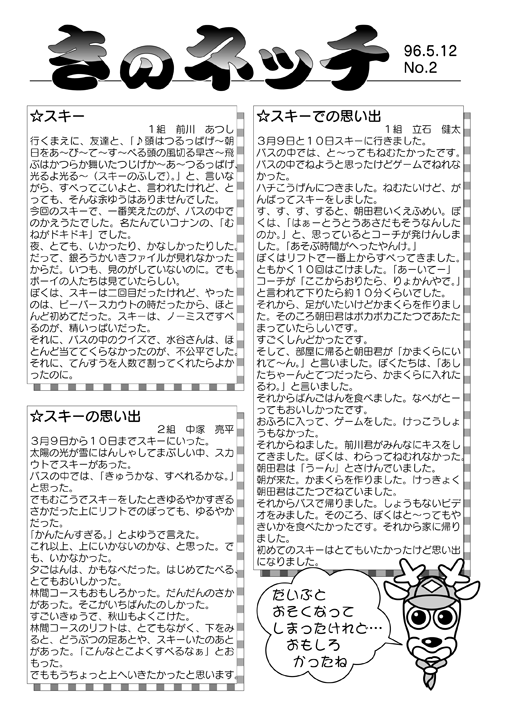 きのネッチ
96.5.12
No.2
☆スキー
1組　前川　あつし
行くまえに、友達と、「♪頭はつるっぱげ〜朝
日をあ〜び〜て〜す〜べる頭の風切る早さ〜飛
ぶはかつらか舞いたつしげか〜あ〜つるっぱげ
光るよ光る〜（スキーのふしで）。」と、言いな
がら、すべってこいよと、言われたけれど、と
っても、そんな余ゆうはありませんでした。
今回のスキーで、一番笑えたのが、バスの中で
のかえうたでした。名たんていコナンの、「む
ねがドキドキ」でした。
夜、とても、いかったり、かなしかったりした。
だって、銀ろうかいきファイルが見れなかった
からだ。いつも、見のがしていないのに。でも、
ボーイの人たちは見ていたらしい。
ぼくは、スキーは二回目だったけれど、やった
のは、ビーバースカウトの時だったから、ほと
んど初めてだった。スキーは、ノーミスですべ
るのが、精いっぱいだった。
それに、バスの中のクイズで、水谷さんは、ほ
とんど当ててくらなかったのが、不公平でした。
それに、てんすうを人数で割ってくれたらよか
ったのに。
☆スキーの思い出
2組　中塚　亮平
3月9日から10日までスキーにいった。
太陽の光が雪にはんしゃしてまぶしい中、スカ
ウトでスキーがあった。
バスの中では、「きゅうかな、すべれるかな。」
と思った。
でもむこうでスキーをしたときゆるやかすぎる
さかだった上にリフトでのぼっても、ゆるやか
だった。
「かんたんすぎる。」とよゆうで言えた。
これ以上、上にいかないのかな、と思った。で
も、いかなかった。
夕ごはんは、かもなべだった。はじめてたべる。
とてもおいしかった。
林間コースもおもしろかった。だんだんのさか
があった。そこがいちばんたのしかった。
すごいきゅうで、秋山もよくこけた。
林間コースのリフトは、とてもながく、下をみ
ると、どうぶつの足あとや、スキーいたのあと
があった。「こんなとこよくすべるなぁ」とお
もった。
でももうちょっと上へいきたかったと思います。
☆スキーでの思い出
1組　立石　健太
3月9日と10日スキーに行きました。
バスの中では、と〜ってもねむたかったです。
バスの中でねようと思ったけどゲームでねれな
かった。
ハチこうげんにつきました。ねむたいけど、が
んばってスキーをしました。
す、す、す、すると、朝田君いくえふめい。ぼ
くは、「はぁーとうとうあさだもそうなんした
のか。」と、思っているとコーチが発けんしま
した。「あそぶ時間がへったやんけ。」
ぼくはリフトで一番上からすべってきました。
ともかく10回はこけました。「あーいてー」
コーチが「ここからおりたら、りょかんやで。」
と言われて下りたら約10分くらいでした。
それから、足がいたいけどかまくらを作りまし
た。そのころ朝田君はポカポカこたつであたた
まっていたらしいです。
すごくしんどかったです。
そして、部屋に帰ると朝田君が「かまくらにい
れて〜ん。」と言いました。ぼくたちは、「あし
たちゃーんとてつだったら、かまくらに入れた
るわ。」と言いました。
それからばんごはんを食べました。なべがと〜
ってもおいしかったです。
おふろに入って、ゲームをした。けっこうしょ
うもなかった。
それからねました。前川君がみんなにキスをし
てきました。ぼくは、わらってねむれなかった。
朝田君は「うーん」とさけんでいました。
朝が来た。かまくらを作りました。けっきょく
朝田君はこたつでねていました。
それからバスで帰りました。しょうもないビデ
オをみました。そのころ、ぼくはと〜ってもや
きいかを食べたかったです。それから家に帰り
ました。
初めてのスキーはとてもいたかったけど思い出
になりました。
だいぶと
おそくなって
しまったけれど…
おもしろ
かったね